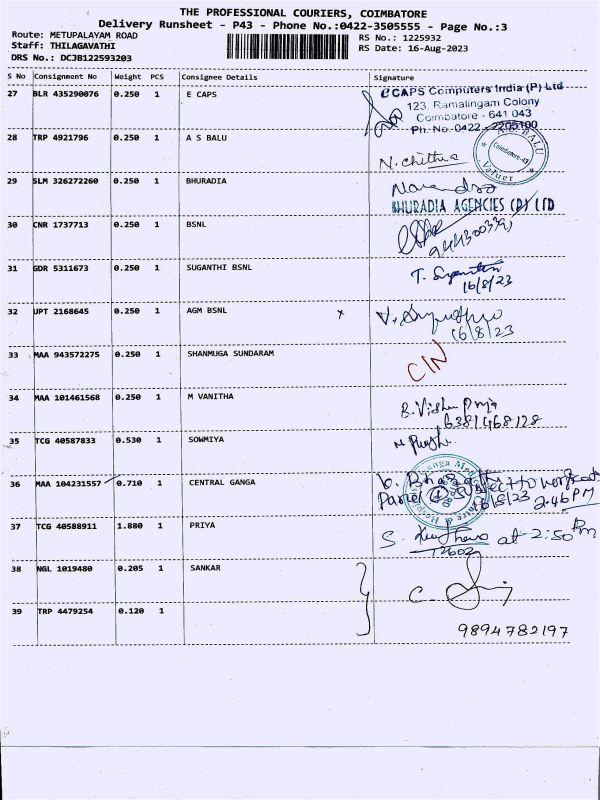 THE PROFESSIONAL COURIERS, COIMBATORE
Delivery Runsheet - P43 - Phone No.:0422-3505555 - Page No.:3
Route: METUPALAYAM ROAD
Staff: THILAGAVATHI
DRS No.: DCJB122593203
RS No.: 1225932
RS Date: 16-Aug-2023
S No Consignment No Weight PCS Consignee Details Signature
27 BLR 435290076 0.250 1 E CAPS
CAPS Computers India (P) Ltd
123, Ramalingam Colony
Coimbatore - 641 043
Ph. No. 0422 - 2205100
28 TRP 4921796 0.250 1 A S BALU
N. Chithra
BALU
Coimbatore-43
Valuer
29 SLM 326272260 0.250 1 BHURADIA
Narendra
BHURADIA AGENCIES (P) LTD
30 CNR 1737713 0.250 1 BSNL
31 GDR 5311673 0.250 1 SUGANTHI BSNL
T. Suganthi
16/8/23
32 UPT 2168645 0.250 1 AGM BSNL x
16/8/23
33 MAA 943572275 0.250 1 SHANMUGA SUNDARAM
CIN
34 MAA 101461568 0.250 1 M VANITHA
B. Vishnu Priya
6381468128
35 TCG 40587833 0.530 1 SOWMIYA
36 MAA 104231557 0.710 1 CENTRAL GANGA
16/8/23
2.46 PM
37 TCG 40588911 1.880 1 PRIYA
S. at 2:50 Pm
12602
38 NGL 1019480 0.205 1 SANKAR
39 TRP 4479254 0.120 1
9894782197